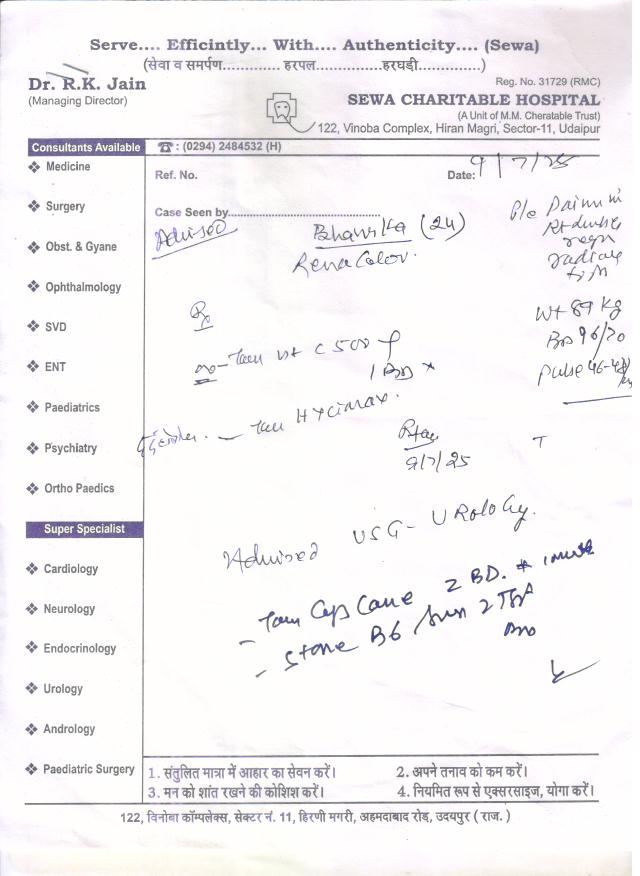 Serve.... Efficintly... With.... Authenticity.... (Sewa)
(सेवा व समर्पण............. हरपल...............हरघदी..............)
Dr. R.K. Jain
(Managing Director)
Reg. No. 31729 (RMC)
SEWA CHARITABLE HOSPITAL
(A Unit of M.M. Cheratable Trust)
122, Vinoba Complex, Hiran Magri, Sector-11, Udaipur
Consultants Available
☎: (0294) 2484532 (H)
Medicine
Surgery
Obst. & Gyane
Ophthalmology
SVD
ENT
Paediatrics
Psychiatry
Ortho Paedics
Super Specialist
Cardiology
Neurology
Endocrinology
Urology
Andrology
Paediatric Surgery
Ref. No.
Date: 9/7/25
Case Seen by................................................
Advised
(24)
Rena Color.
Wt 89 kg
96/70
Pulse 46-48
Rx
C 500
1 BD x
9/7/25
Advised USG - UROLOGY.
2 BD.
Stone B6
1. संतुलित मात्रा में आहार का सेवन करें।
2. अपने तनाव को कम करें।
3. मन को शांत रखने की कोशिश करें।
4. नियमित रूप से एक्सरसाइज, योगा करें।
122, विनोबा कॉम्पलेक्स, सेक्टर नं. 11, हिरणी मगरी, अहमदाबाद रोड, उदयपुर ( राज. )